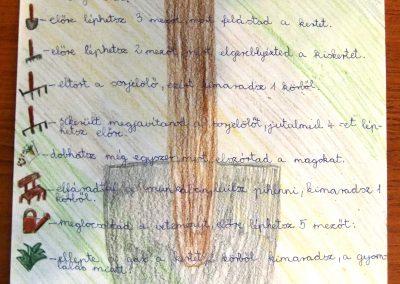 - előre léphetsz 3 mezőt, mert felástad a kertet.
- előre léphetsz 2 mezőt, mert elgereblyézted a kiskertet.
- eltört a sorjelölő, ezért kimaradsz 1 körből.
- sikerült megjavítanod a sorjelölőt, jutalmul 4-et lép-
hetsz előre.
- dobhatsz még egyszer, mert elszórtad a magokat.
- elfáradtál a munkában, leülsz pihenni, kimaradsz 1
körből.
- meglocsoltad a veteményt, előre léphetsz 5 mezőt.
- ellepte a gaz a kertet 2 körből kimaradsz, a gyom-
lálás miatt.